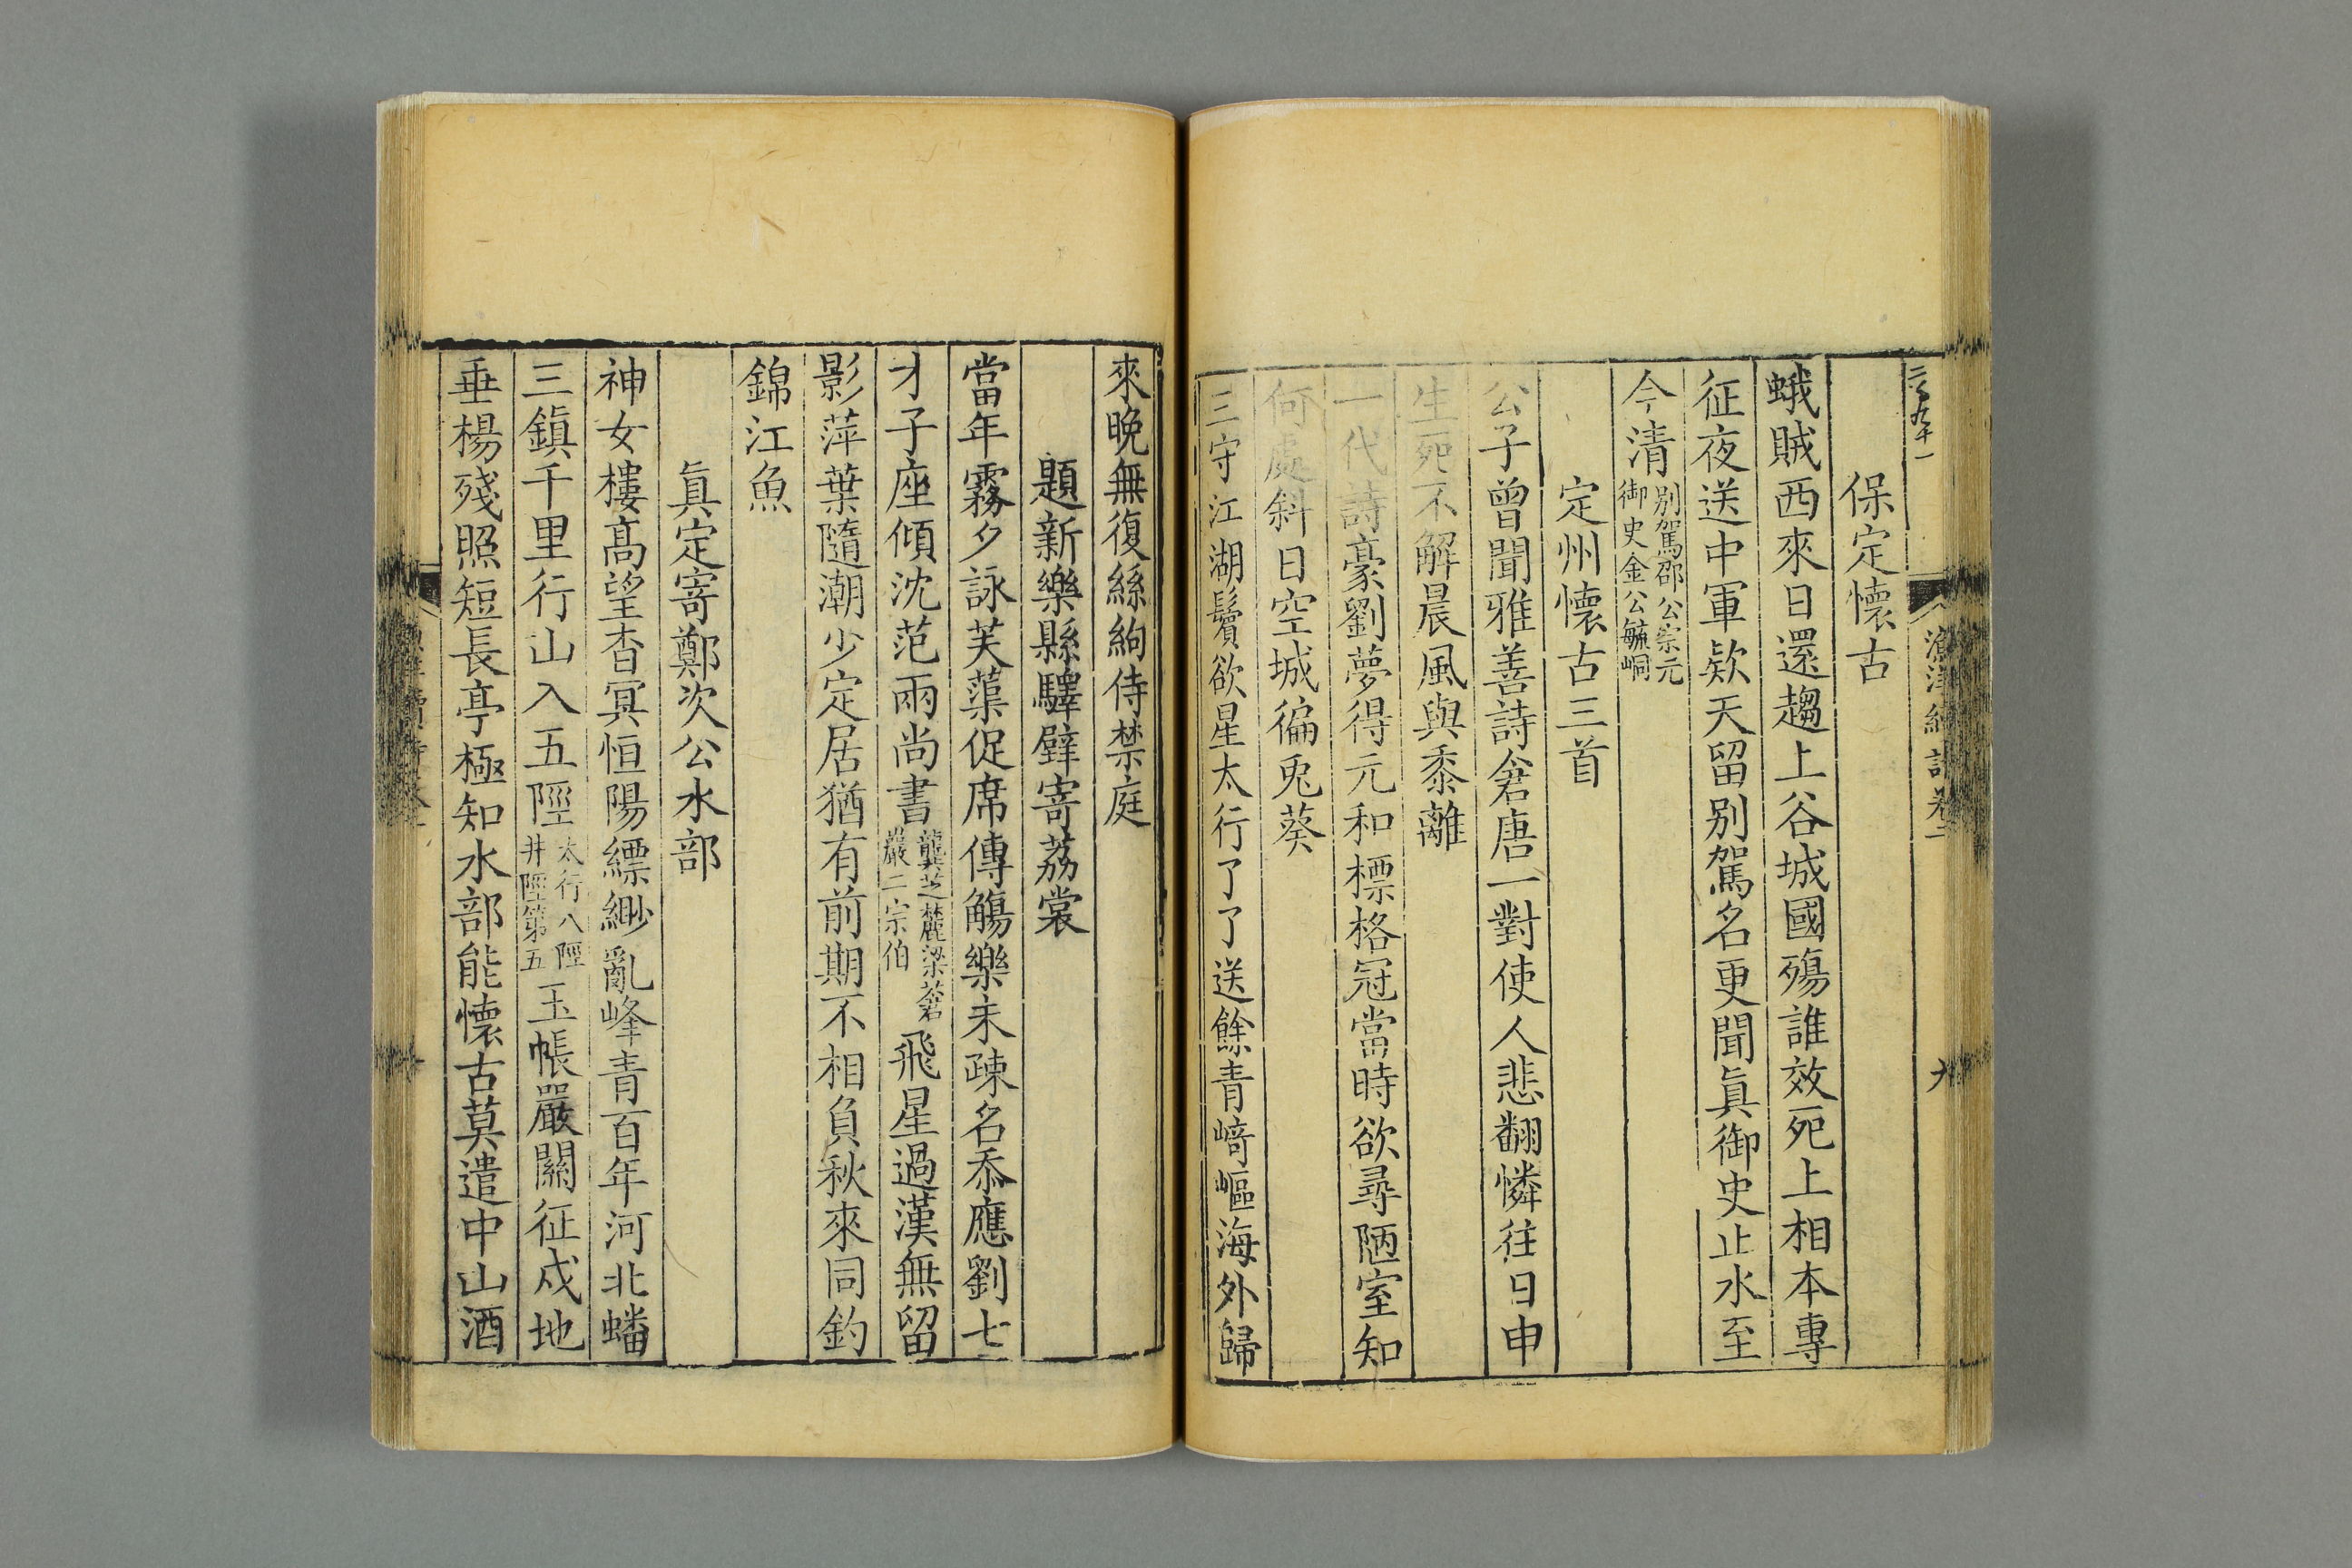 保定懷古
蛾賊西來日還趨上谷城國殤誰效死上相本專
征夜送中軍欵天留別駕名更聞眞御史止水至
今清別駕邵公宗元御史金公毓峒
定州懷古三首
公子曾聞雅善詩倉唐一對使人悲翻憐往日申
生死不解晨風與黍離
一代詩豪劉夢得元和標格冠當時欲尋陋室知
何處斜日空城徧兎葵
三守江湖鬢欲星太行了了送餘青﨑嶇海外歸
來晚無復絲絇侍禁庭
題新樂縣驛壁寄荔裳
當年霧夕詠芙蕖促席傳觴樂未疎名忝應劉七
才子座傾沈范兩尚書龔芝麓梁蒼巖二宗伯飛星過漢無留
影萍葉隨潮少定居猶有前期不相負秋來同釣
錦江魚
眞定寄鄭次公水部
神女樓髙望杳冥恒陽縹緲亂峰青百年河北蟠
三鎮千里行山入五陘太行八陘井陘第五玉帳嚴關征戍地
垂楊殘照短長亭極知水部能懷古莫遣中山酒